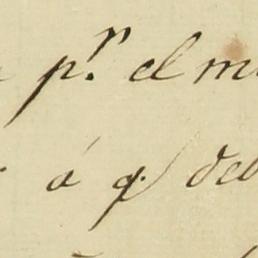 p.ʳ el m
á q.ᵉ deb